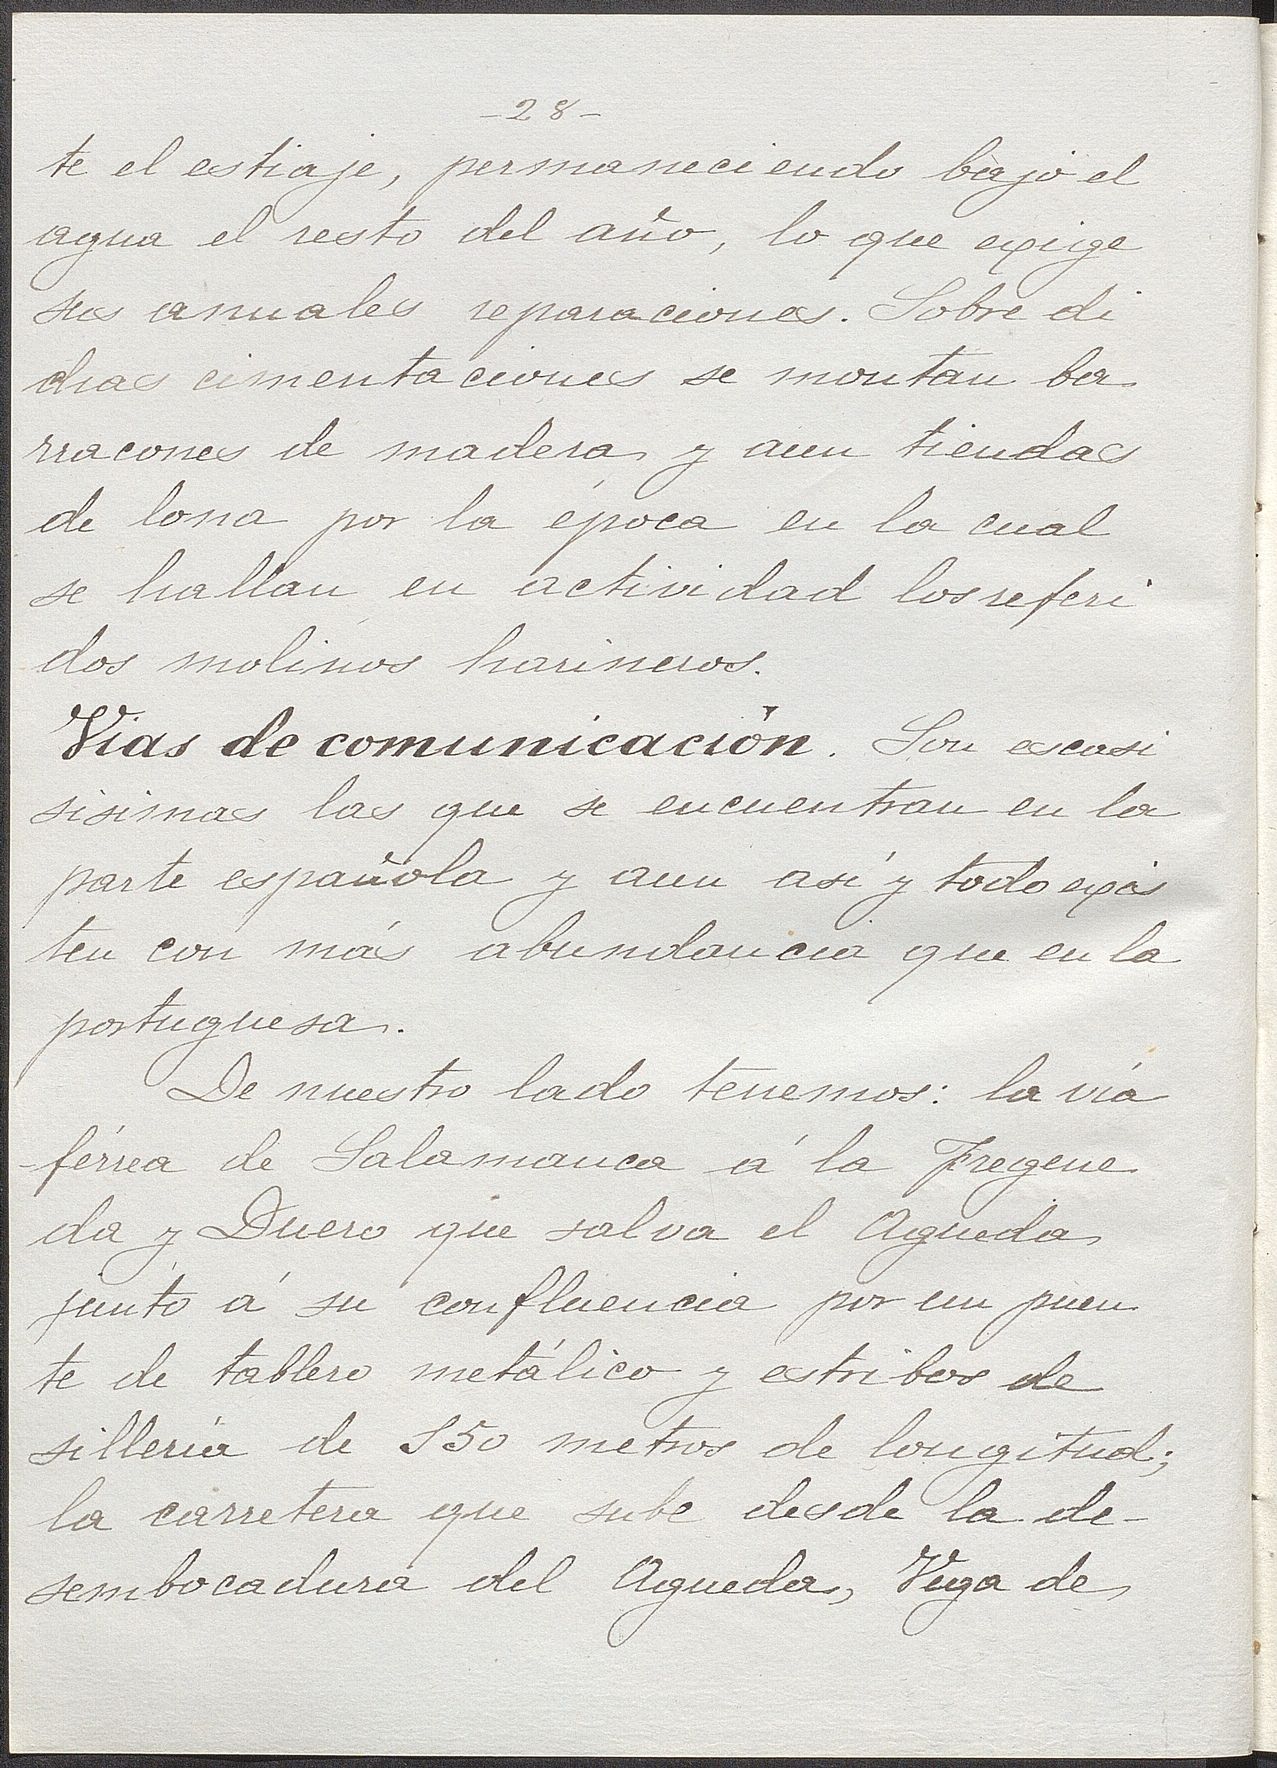 -28-
te el estiaje, permaneciendo bajo el
agua el resto del año, lo que exige
sus anuales reparaciones. Sobre di
chas cimentaciones se montan ba
rracones de madera y aun tiendas
de lona por la época en la cual
se hallan en actividad los referi
dos molinos harineros.
Vias de comunicación. Son escasi
sisimas las que se encuentran en la
parte española y aun asi y todo exis
ten con más abundancia que en la
portuguesa.
De nuestro lado tenemos: la via
férrea de Salamanca á la Fregene
da y Duero que salva el Agueda
junto á su confluencia por un puen
te de tablero metálico y estribos de
silleria de 150 metros de longitud;
la carretera que sube desde la de-
sembocadura del Agueda, Vega de